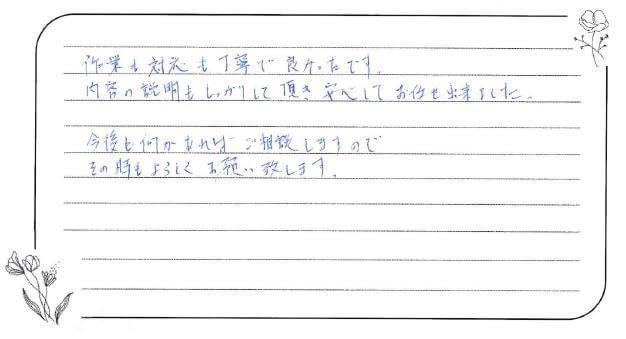 作業も対応も丁寧で良かったです。
内容の説明もしっかりして頂き安心してお任せ出来ました。
今後も何かあればご相談しますので
その時もよろしくお願い致します。